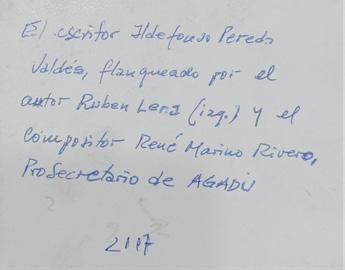 El escritor Ildefonso Pereda
Valdés, flanqueado por el
autor Ruben Lena (izq.) y el
compositor René Marino Rivero,
ProSecretario de AGADU